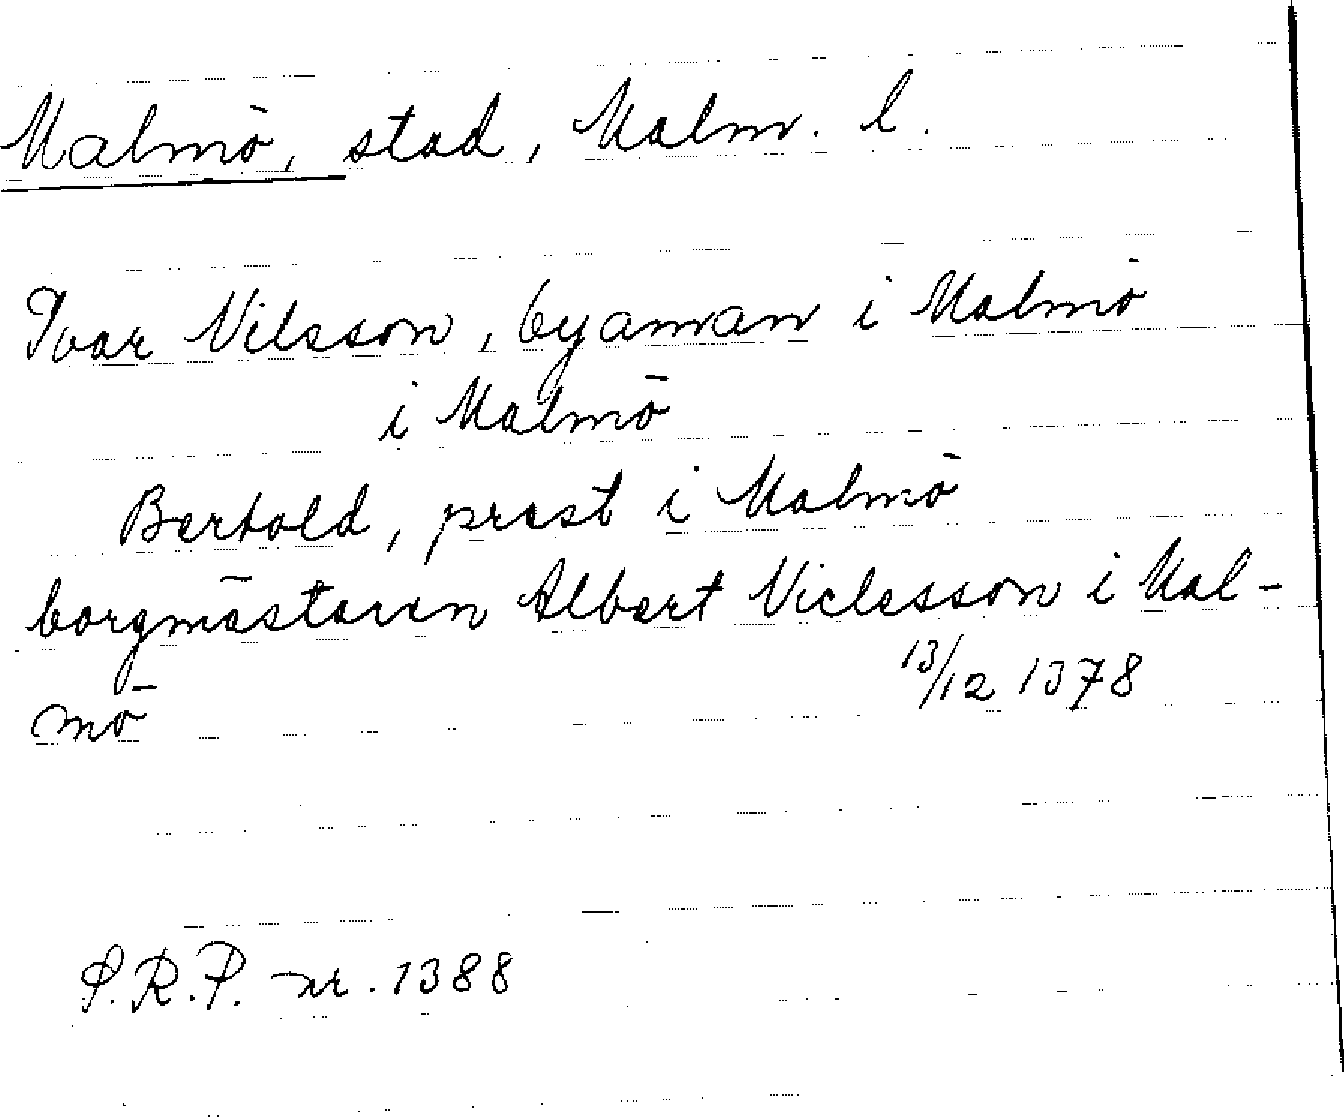 Malmö, stad, Malm. l.
Ivar Nilsson, byaman i Malmö
i Malmö
Bertold, prest i Malmö
borgmästaren Albert Niclesson i Mal-
mö 13/12 1378
S.R.P. nr. 1388